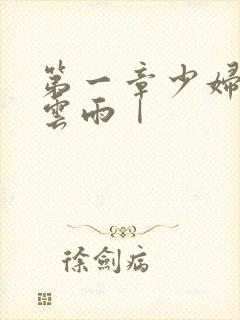 第一章少婦
雲雨丨
徐劍病